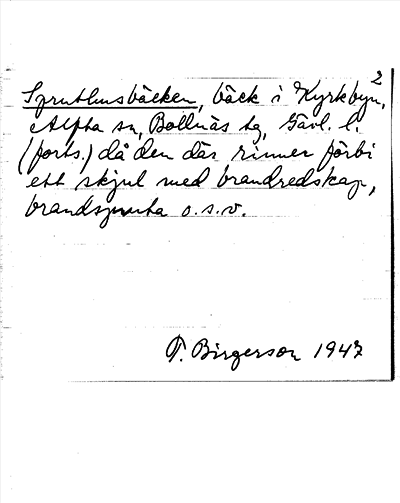 2
Spruthusbäcken, bäck i Kyrkbyn,
Alfta sn, Bollnäs tg, Gävl. l.
(forts.) då den där rinner förbi
ett skjul med brandredskap,
brandspruta o.s.v.
F. Birgerson 1947